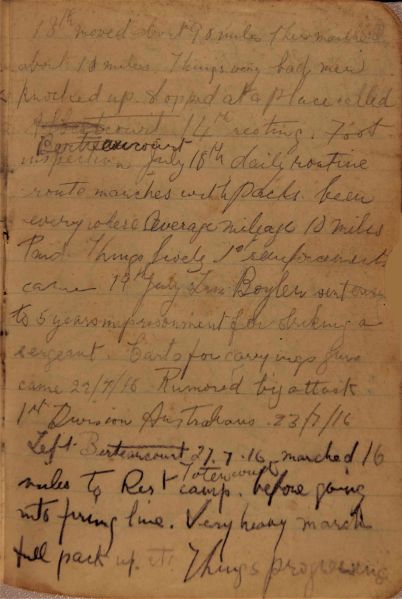 13th moved about 90 miles then marched
about 18 miles. Things very bad men
knocked up. Stopped at a place called
14th resting. Foot
Berteaucourt
inspection July 18th daily routine
route marches with packs been
everywhere average mileage 10 miles
Paid. Things lively 1st reinforcements
came 19th July Boylen
to 5 years imprisonment for striking a
sergeant. Carts for carrying guns
came 22/7/16 Rumored big attack
1st Division Australians. 23/7/16
Left Berteaucourt 27.7.16. marched 16
miles to Rest camp. before going
into firing line. Very heavy march
full pack up. Things progressing